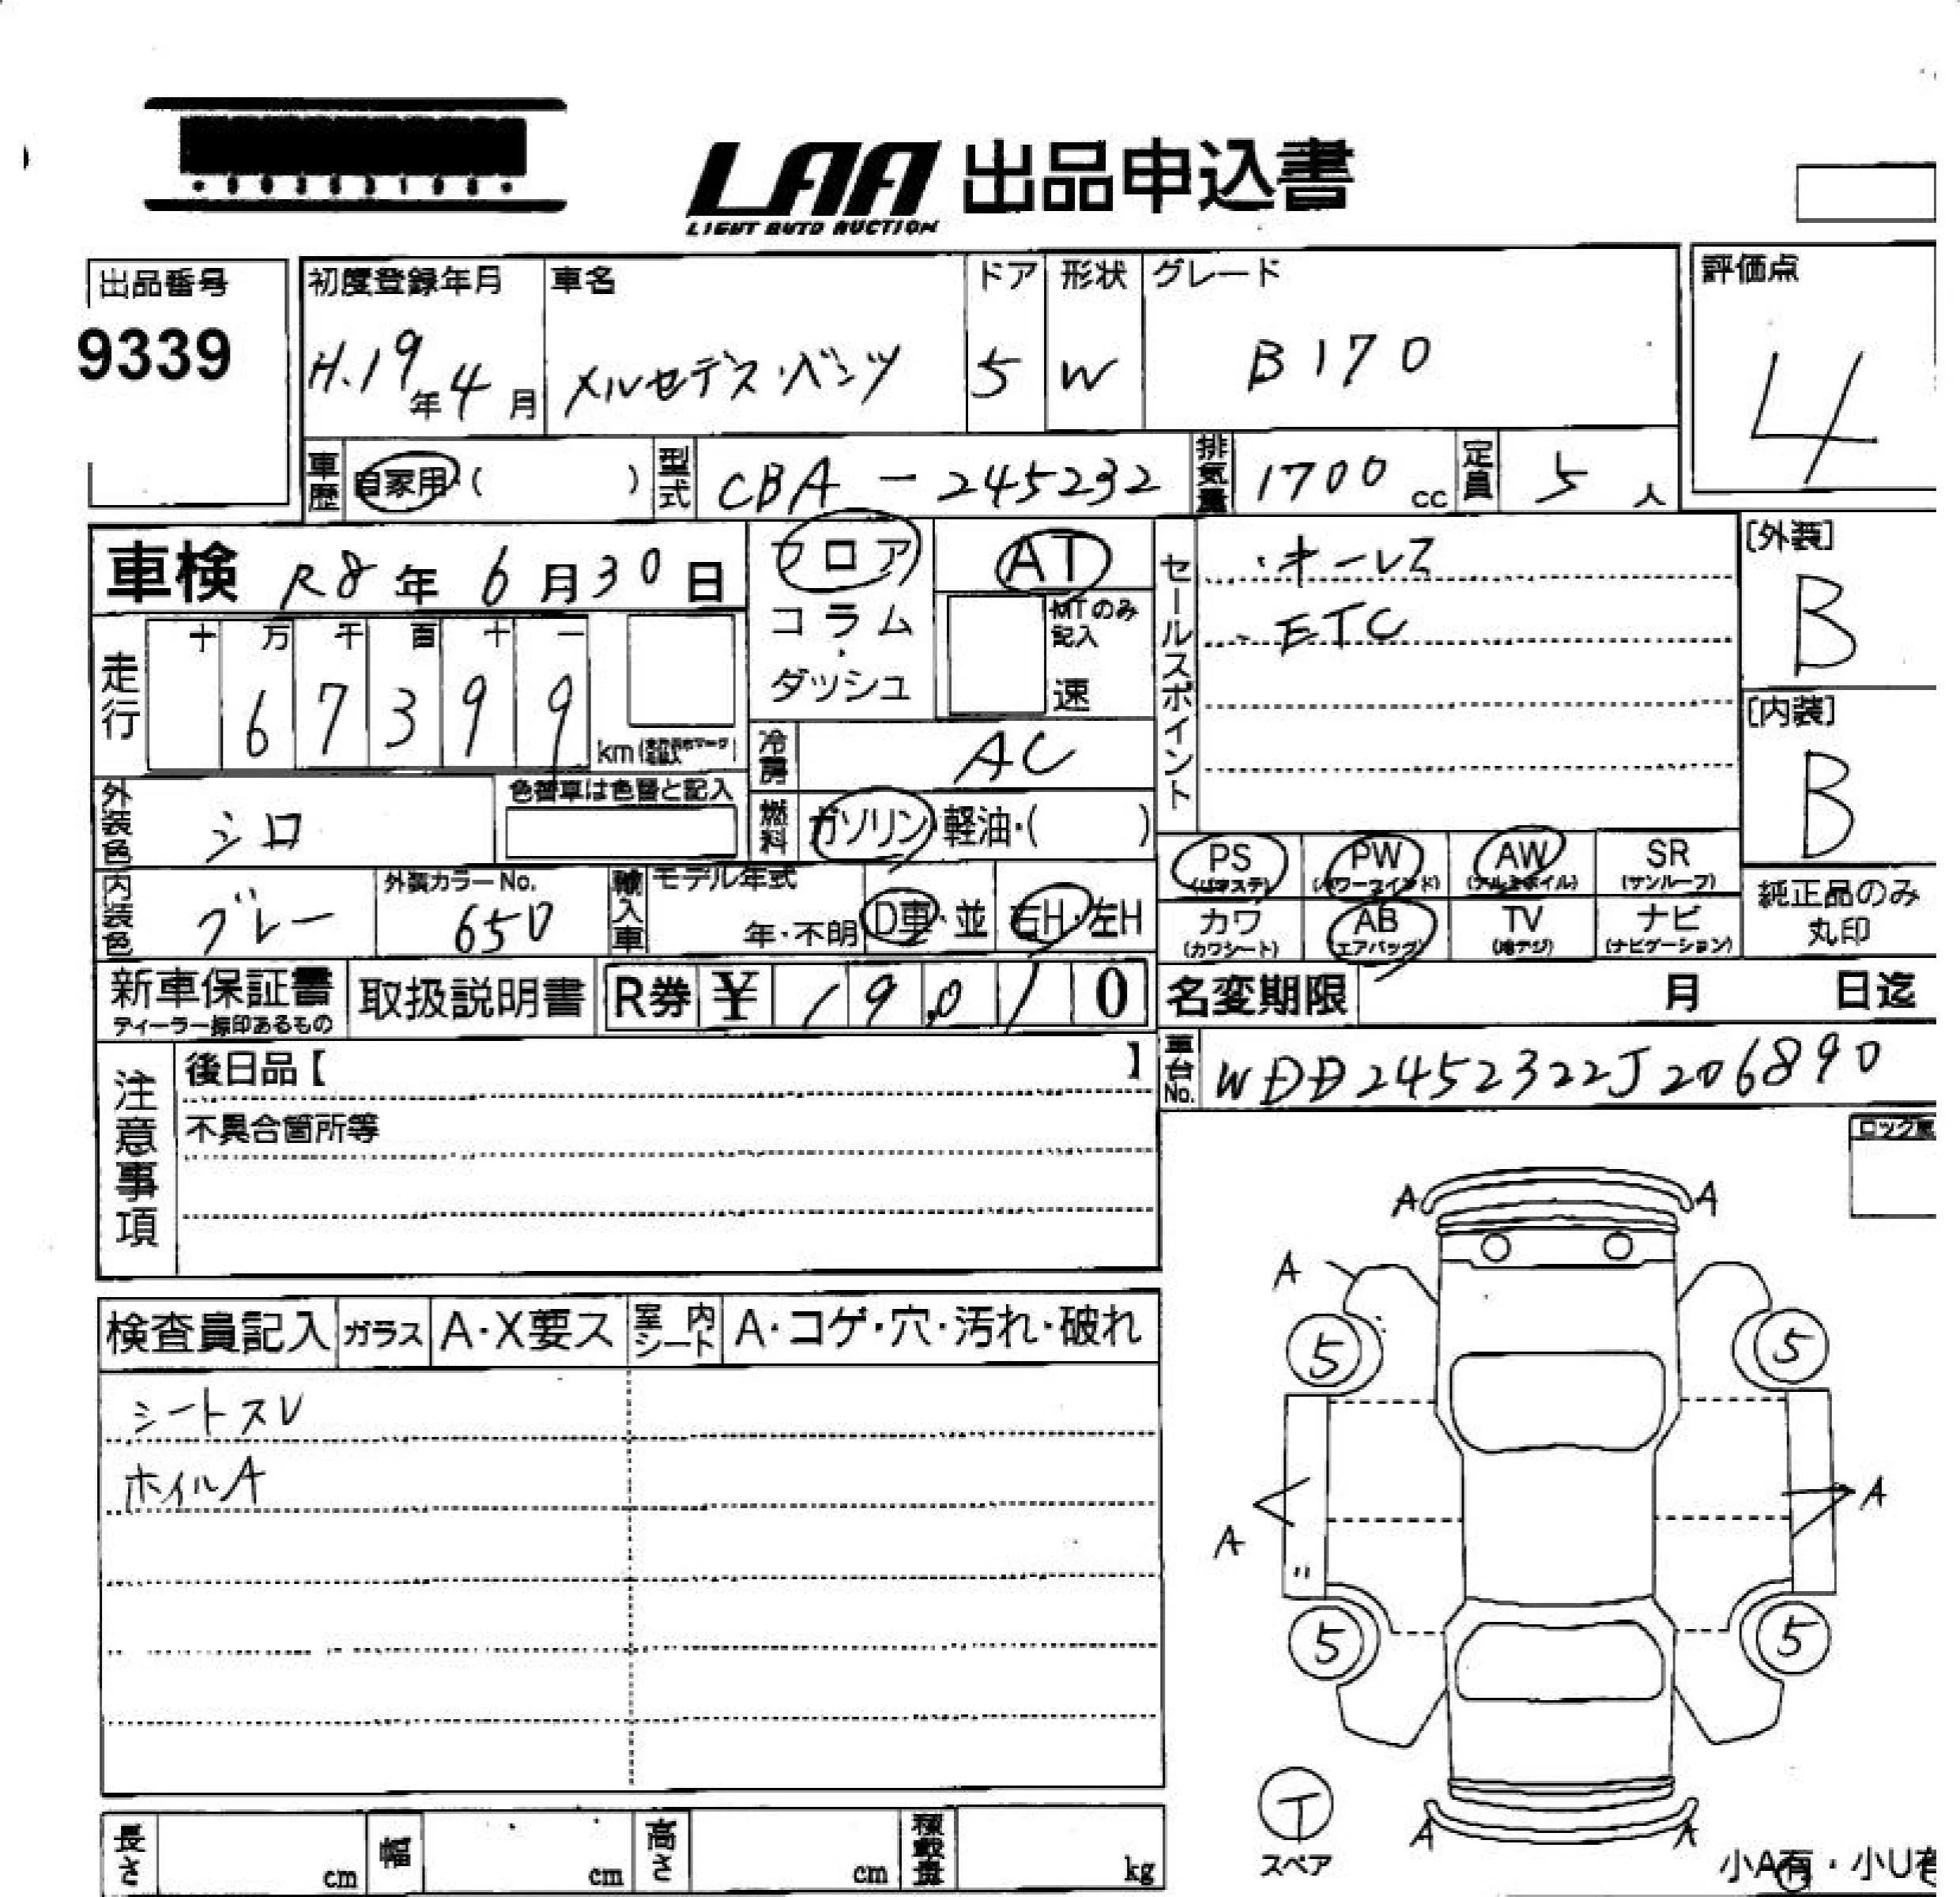 LAA 出品申込書
LIGHT AUTO AUCTION
出品番号
9339
初度登録年月
H.19年4月
車名
メルセデス・ベンツ
ドア
5
形状
W
グレード
B170
評価点
4
車歴
自家用・( )
型式
CBA-245232
排気量
1700 cc
定員
5 人
車検 R8年 6月30日
フロア
コラム
・
ダッシュ
AT
MTのみ記入
速
セールスポイント
・キーレス
・ETC
[外装]
B
[内装]
B
走行
十 万 千 百 十 一
6 7 3 9 9
km
冷房
AC
外装色
シロ
色替車は色替と記入
燃料
ガソリン・軽油・( )
PS
(パワステ)
PW
(パワーウインド)
AW
(アルミホイル)
SR
(サンルーフ)
内装色
グレー
外装カラーNo.
650
輸入車
モデル年式
年・不明
D車・並
右H・左H
カワ
(カワシート)
AB
(エアバッグ)
TV
(地デジ)
ナビ
(ナビゲーション)
純正品のみ
丸印
新車保証書
ディーラー捺印あるもの
取扱説明書
R券 ¥ 19,010
名変期限 月 日迄
注意事項
後日品【 】
不具合箇所等
車台No.
WDD2452322J206890
検査員記入
ガラス
A・X要ス
室内シート
A・コゲ・穴・汚れ・破れ
シートスレ
ホイルA
A A
A
5 5
A
A
〃
5 5
T
スペア
A A
小A有・小U有
長さ cm
幅 cm
高さ cm
積載量 kg